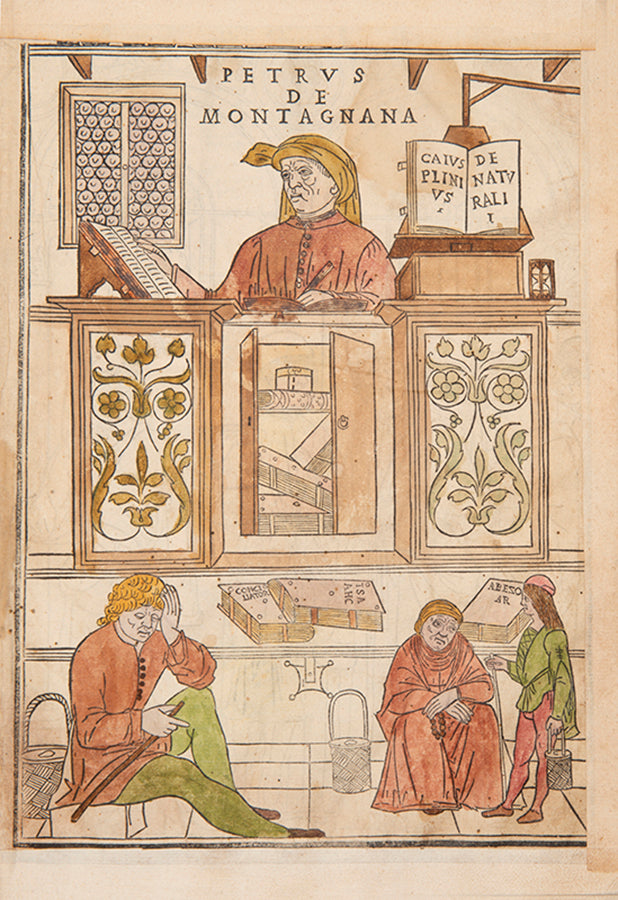 PETRVS
DE
MONTAGNANA
CAIVS
PLINI
VS
I
DE
NATV
RALI
I
CONCI
LIATOR
ISA
AHC
ABEZO
AR